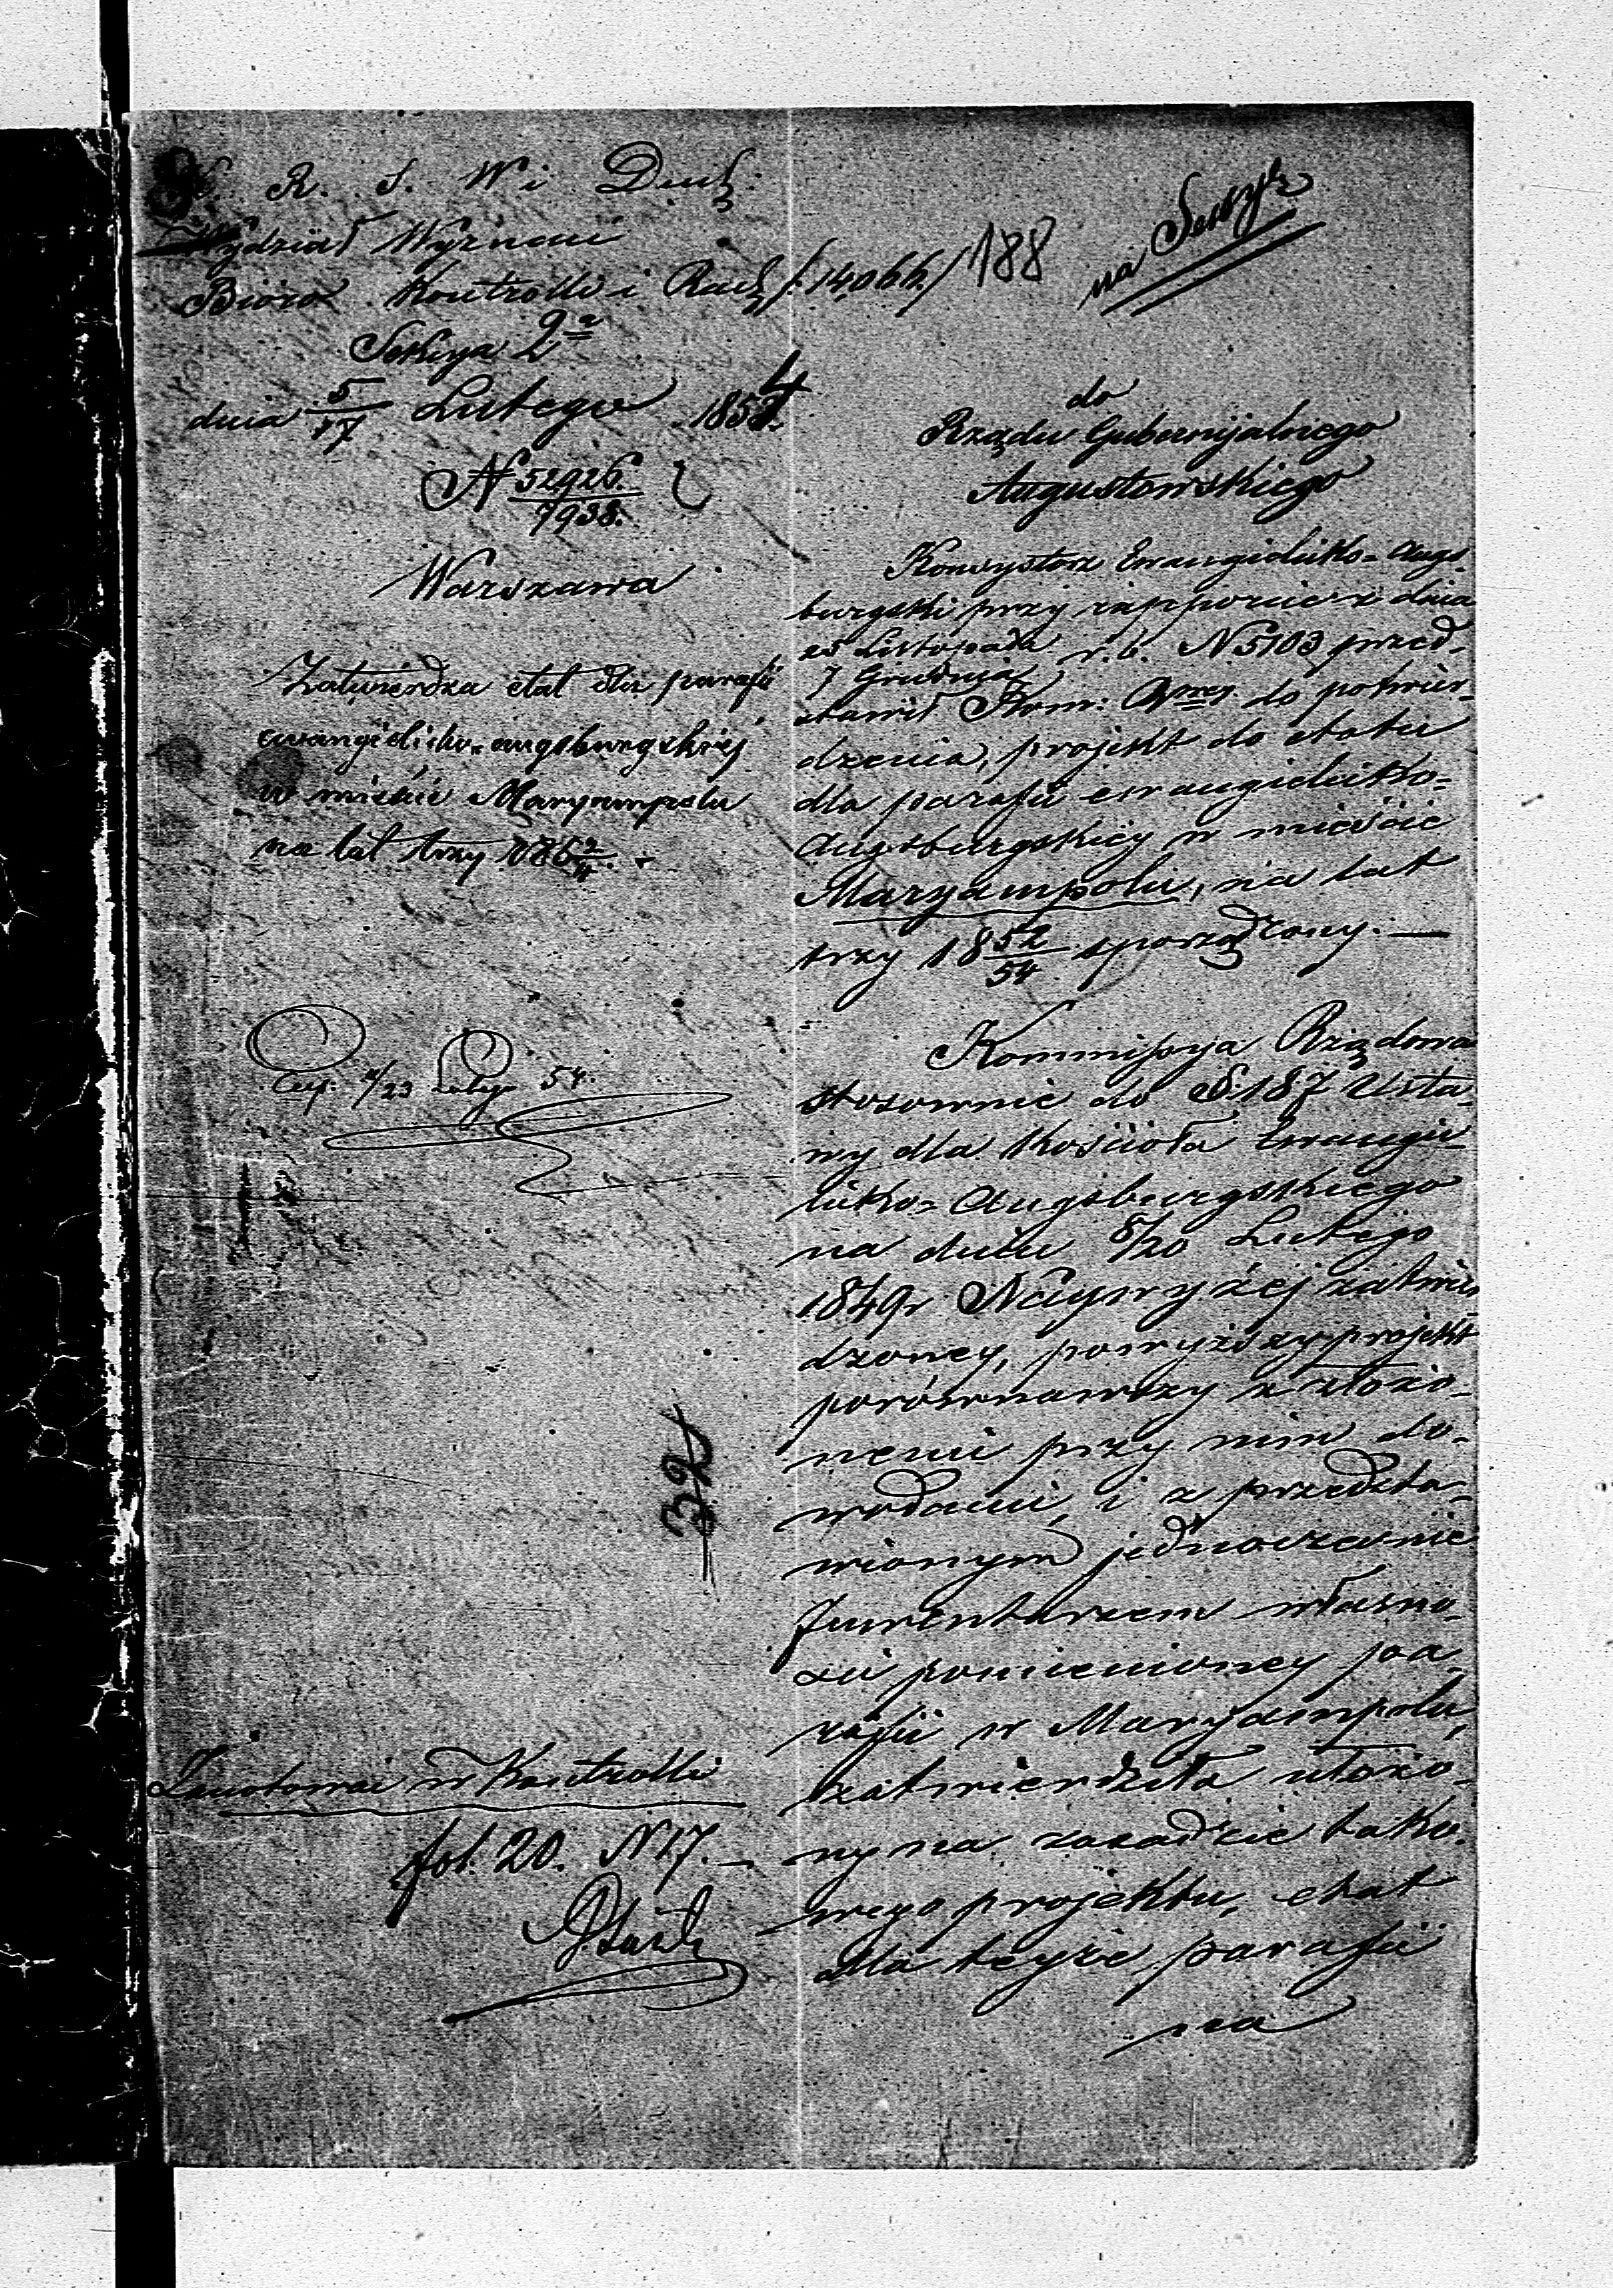 K. R. S. W i Duch.
Wydział Wyznań
Bióro Kontrolli i Rach. /:14,066:/ 188
na Sessyę
Sekcya 2ª
dnia 5/17 Lutego 1854.
N 52926./7938.
Warszawa
Zatwierdza etat dla parafii
ewangielicko-augsburgskiej
w mieście Maryampolu
na lat trzy 185 2/4.
Exp. 11/23 Lutego 54.
328
Zanotowano w Kontrolli
fol. 20. N 17.
do
Rządu Gubernijalnego
Augustowskiego
Konsystorz Ewangielicko-Augs-
burgski przy rapporcie z dnia
25 Listopada
7 Grudnia r. b. N 5103 przed-
stawił Kom: Rząd. do potwier-
dzenia, projekt do etatu
dla parafii ewangielicko-
Augsburgskiéy w mieście
Maryampolu, na lat
trzy 18 52/54 sporządzony. —
Kommissya Rządowa
stosownie do §. 187 Usta-
wy dla Kościoła Ewangie-
licko-Augsburgskiego
na dniu 8/20 Lutego
1849 r Naywyżej zatwier-
dzoney, powyższy projekt
porównawszy z złożo-
nemi przy nim do-
wodami, i z przedsta-
wionym jednocześnie
Inwentarzem własno-
ści pomienioney pa-
rafii w Maryampolu,
zatwierdziła ułożo-
ny na zasadzie tako-
wego projektu, etat
dla teyże parafii
na